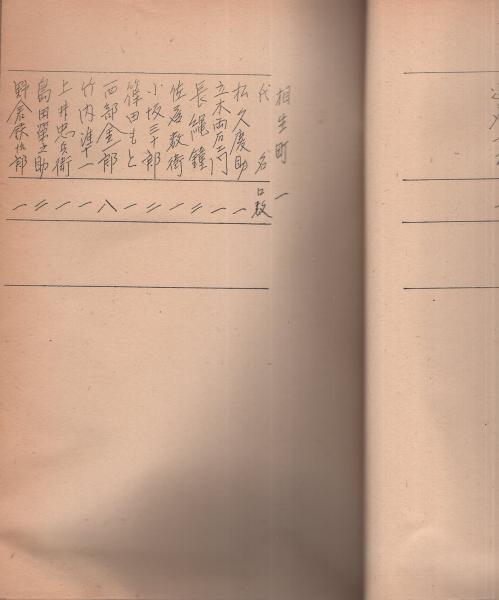 相生町 一
代 名 口数
松久慶助 一
立木両右衛門 一
長縄鐘 二
佐 教衛 一
小坂三十郎 二
篠田もと 一
西部金一郎 八
竹内準一 一
上井忠兵衛 一
島田栄之助 二
野倉 郎 一